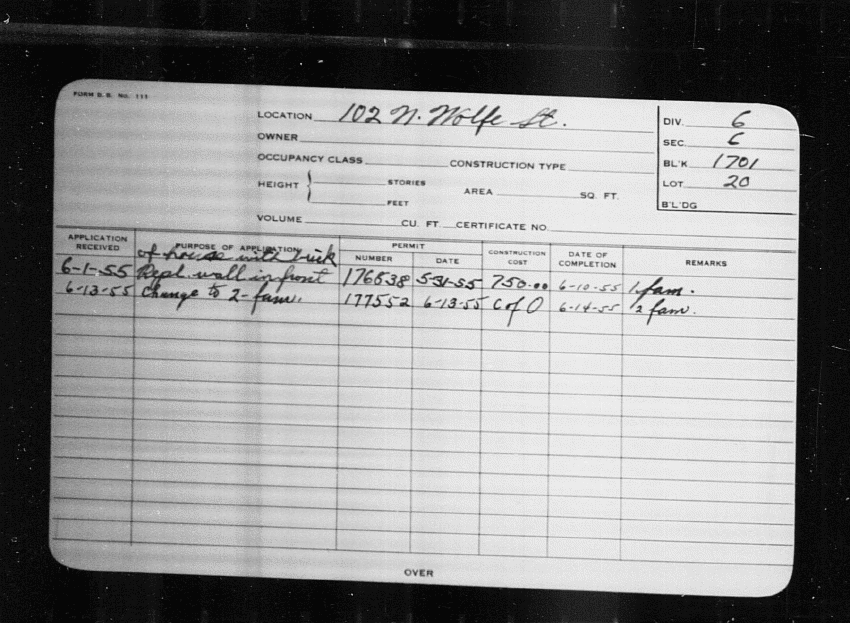 FORM D. B. No. 111
LOCATION 102 N. Wolfe St.
OWNER
OCCUPANCY CLASS CONSTRUCTION TYPE
HEIGHT STORIES AREA SQ. FT.
FEET
VOLUME CU. FT. CERTIFICATE NO.
DIV. 6
SEC. 6
BL'K 1701
LOT 20
B'L'DG
APPLICATION RECEIVED PURPOSE OF APPLICATION PERMIT NUMBER DATE CONSTRUCTION COST DATE OF COMPLETION REMARKS
of house with brick
6-1-55 Repl. wall in front 176838 5-31-55 750.00 6-10-55 1 fam.
6-13-55 Change to 2-fam. 177552 6-13-55 C of O 6-14-55 2 fam.
OVER